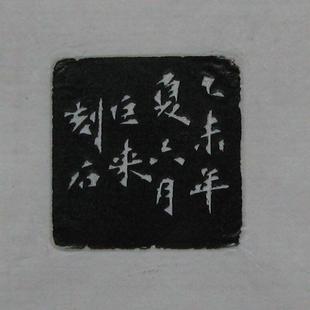 乙未年
夏六月
来
刻石